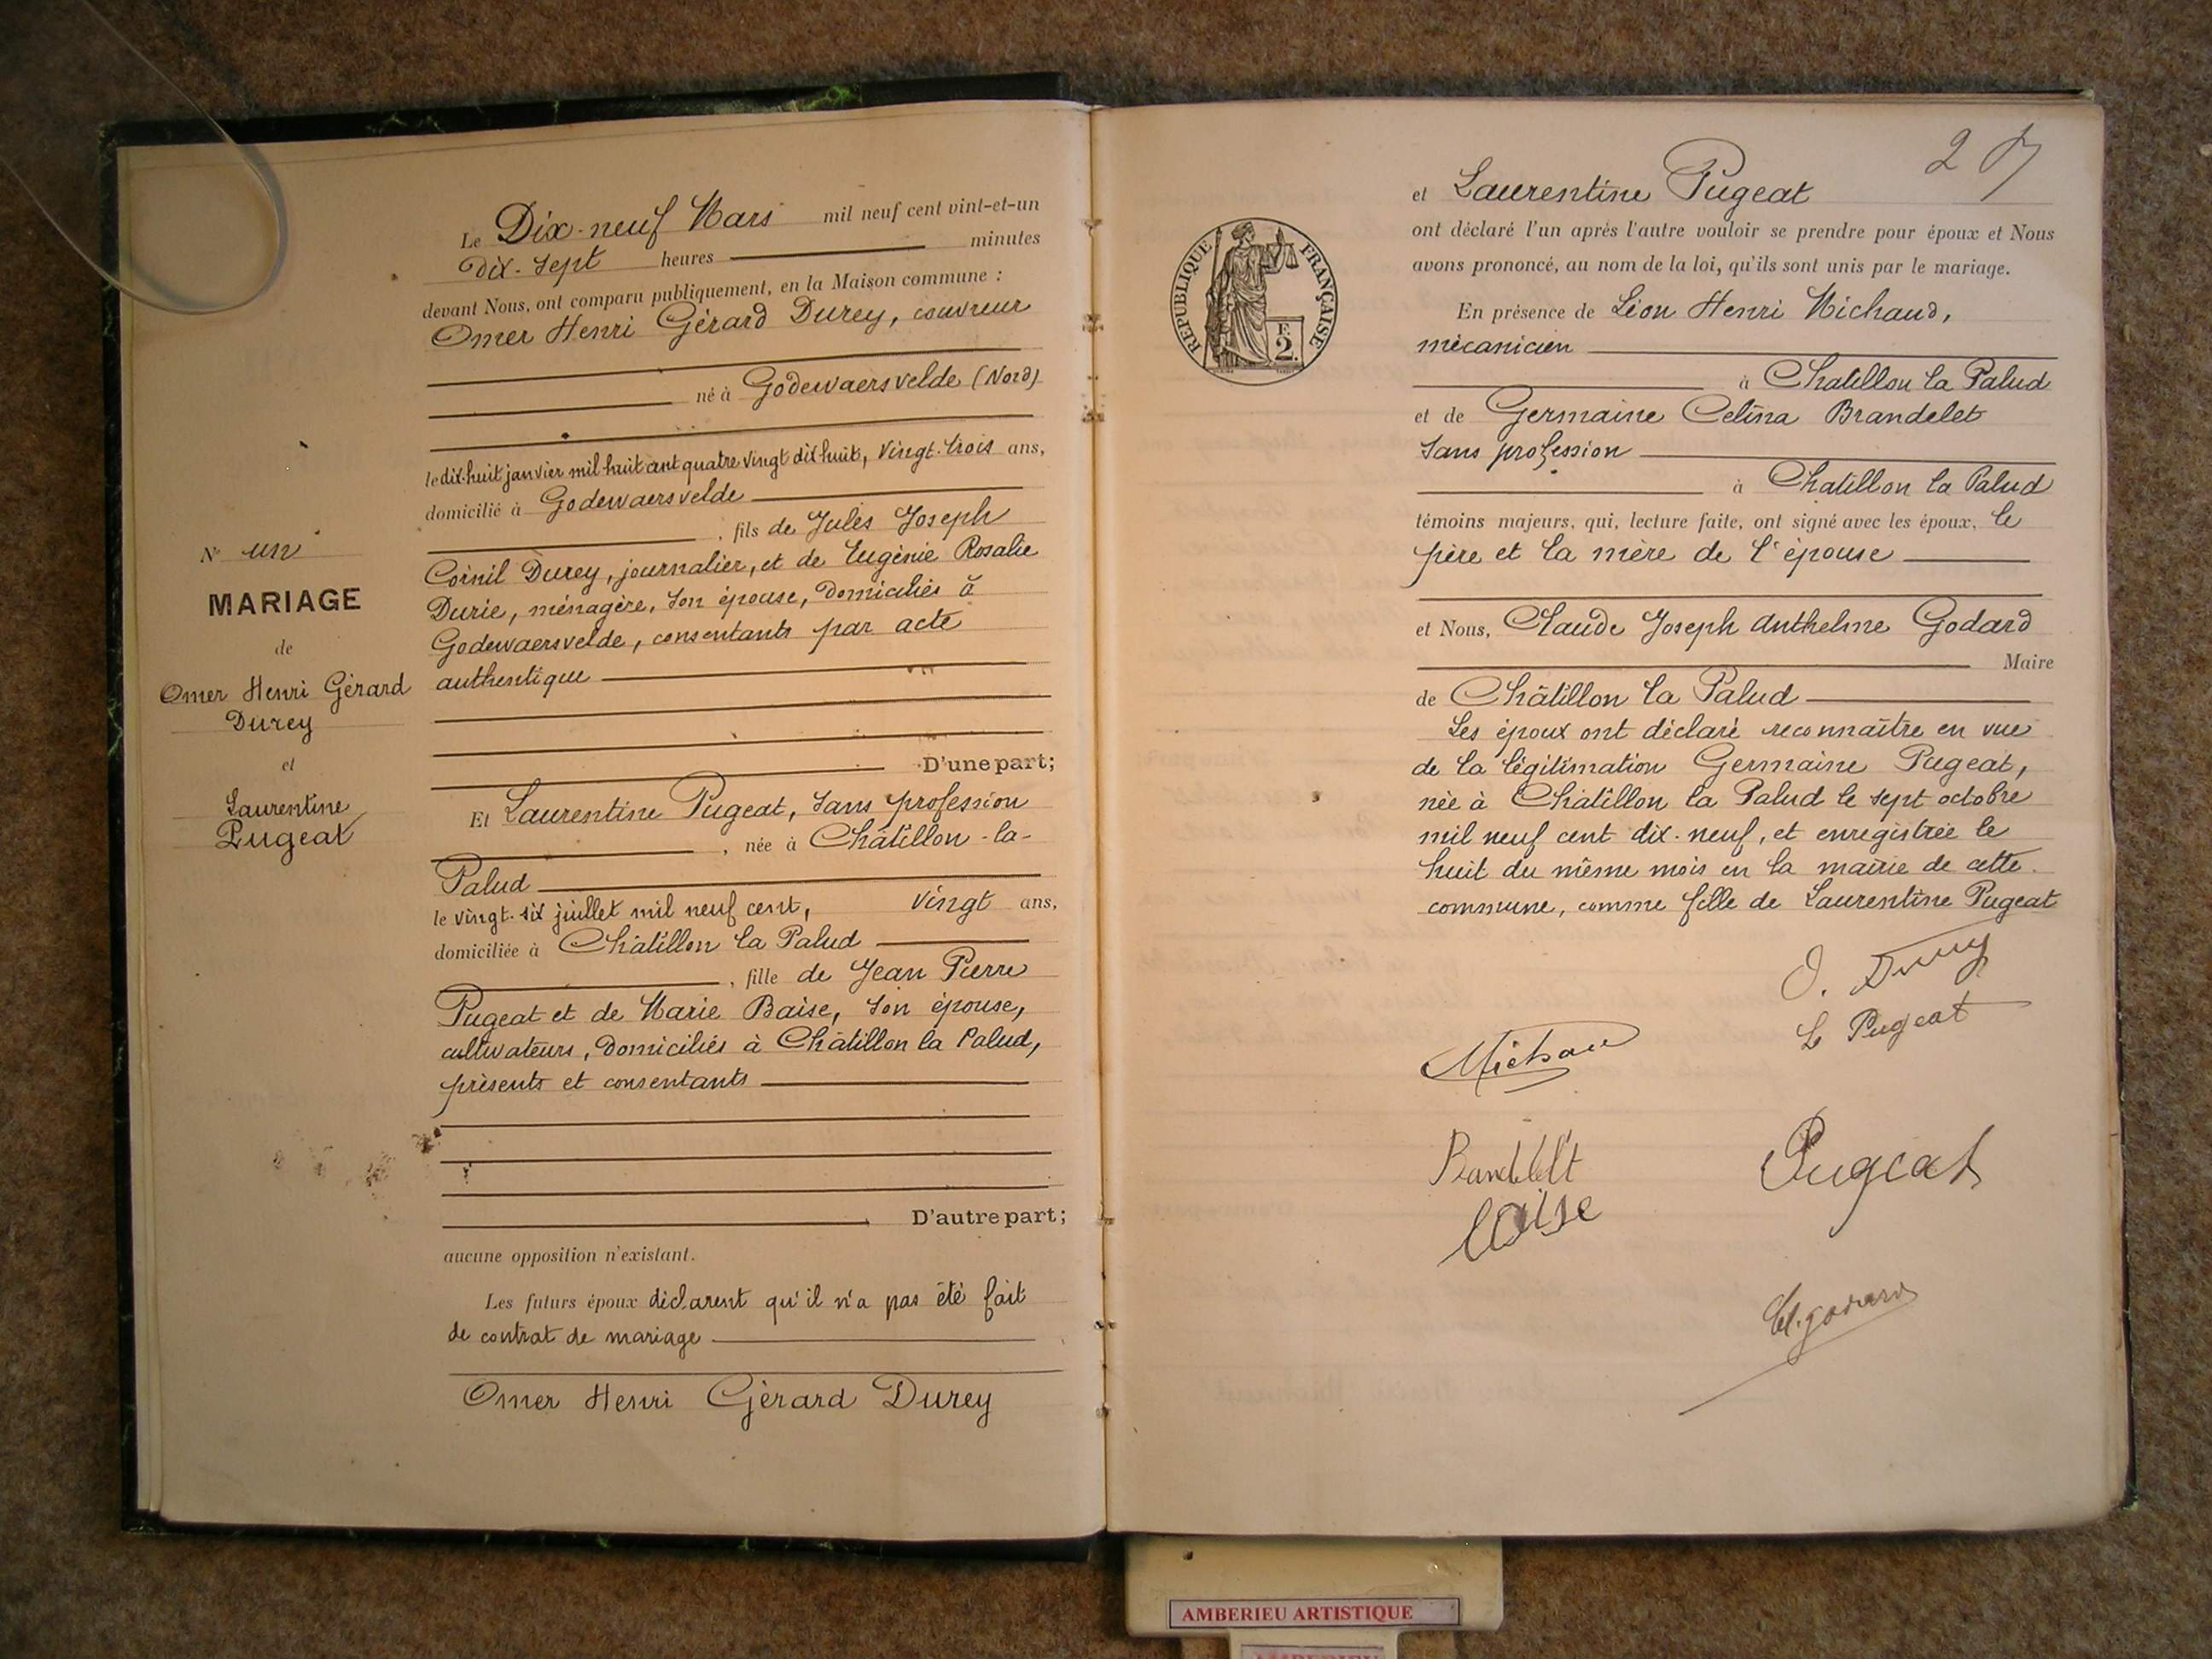 Le Dix-neuf Mars mil neuf cent vint-et-un
dix-sept heures minutes
devant Nous, ont comparu publiquement, en la Maison commune :
Omer Henri Gérard Durey, couvreur
né à Godewaersvelde (Nord)
le dix-huit janvier mil huit cent quatre vingt dix huit, vingt-trois ans,
domicilié à Godewaersvelde
, fils de Jules Joseph
Cornil Durey, journalier, et de Eugénie Rosalie
Durie, ménagère, son épouse, domiciliés à
Godewaersvelde, consentants par acte
authentique
D'une part;
Et Laurentine Pugeat, sans profession
, née à Châtillon-la-
Palud
le vingt-six juillet mil neuf cent, vingt ans,
domiciliée à Châtillon la Palud
, fille de Jean Pierre
Pugeat et de Marie Baise, son épouse,
cultivateurs, domiciliés à Châtillon la Palud,
présents et consentants
D'autre part;
aucune opposition n'existant.
Les futurs époux déclarent qu'il n'a pas été fait
de contrat de mariage
Omer Henri Gérard Durey
N° un
MARIAGE
de
Omer Henri Gérard
Durey
et
Laurentine
Pugeat
2
RÉPUBLIQUE FRANÇAISE
F.
2.
et Laurentine Pugeat
ont déclaré l'un aprés l'autre vouloir se prendre pour époux et Nous
avons prononcé, au nom de la loi, qu'ils sont unis par le mariage.
En présence de Léon Henri Michaud,
mécanicien
à Chatillon la Palud
et de Germaine Celina Brandelet
sans profession
à Chatillon la Palud
témoins majeurs, qui, lecture faite, ont signé avec les époux, le
père et la mère de l'épouse
et Nous, Claude Joseph Anthelme Godard
Maire
de Châtillon la Palud
Les époux ont déclaré reconnaître en vue
de la légitimation Germaine Pugeat,
née à Châtillon la Palud le sept octobre
mil neuf cent dix-neuf, et enregistrée le
huit du même mois en la mairie de cette
commune, comme fille de Laurentine Pugeat
O. Durey
L Pugeat
Michau
Pugeat
AMBERIEU ARTISTIQUE
AMBERIEU